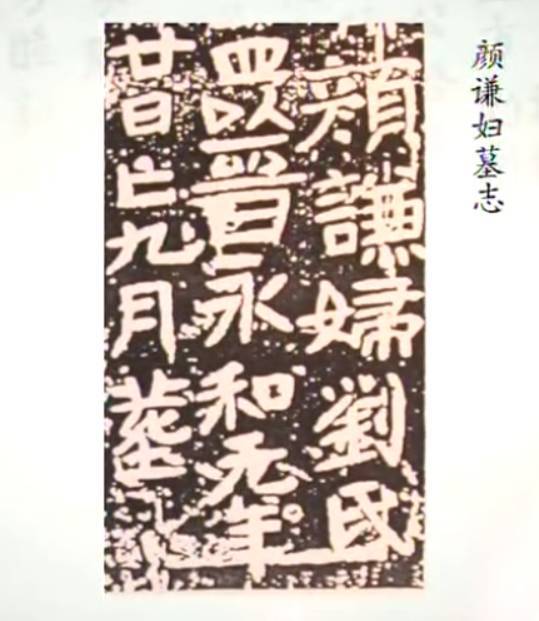 颜谦妇墓志
顏謙婦劉氏
四以晉永和元年
廿日亡九月葬